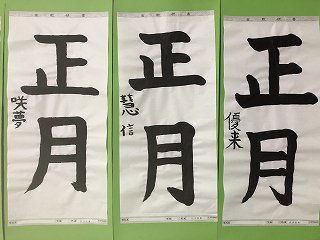 正月
咲夢
正月
慧信
正月
優来